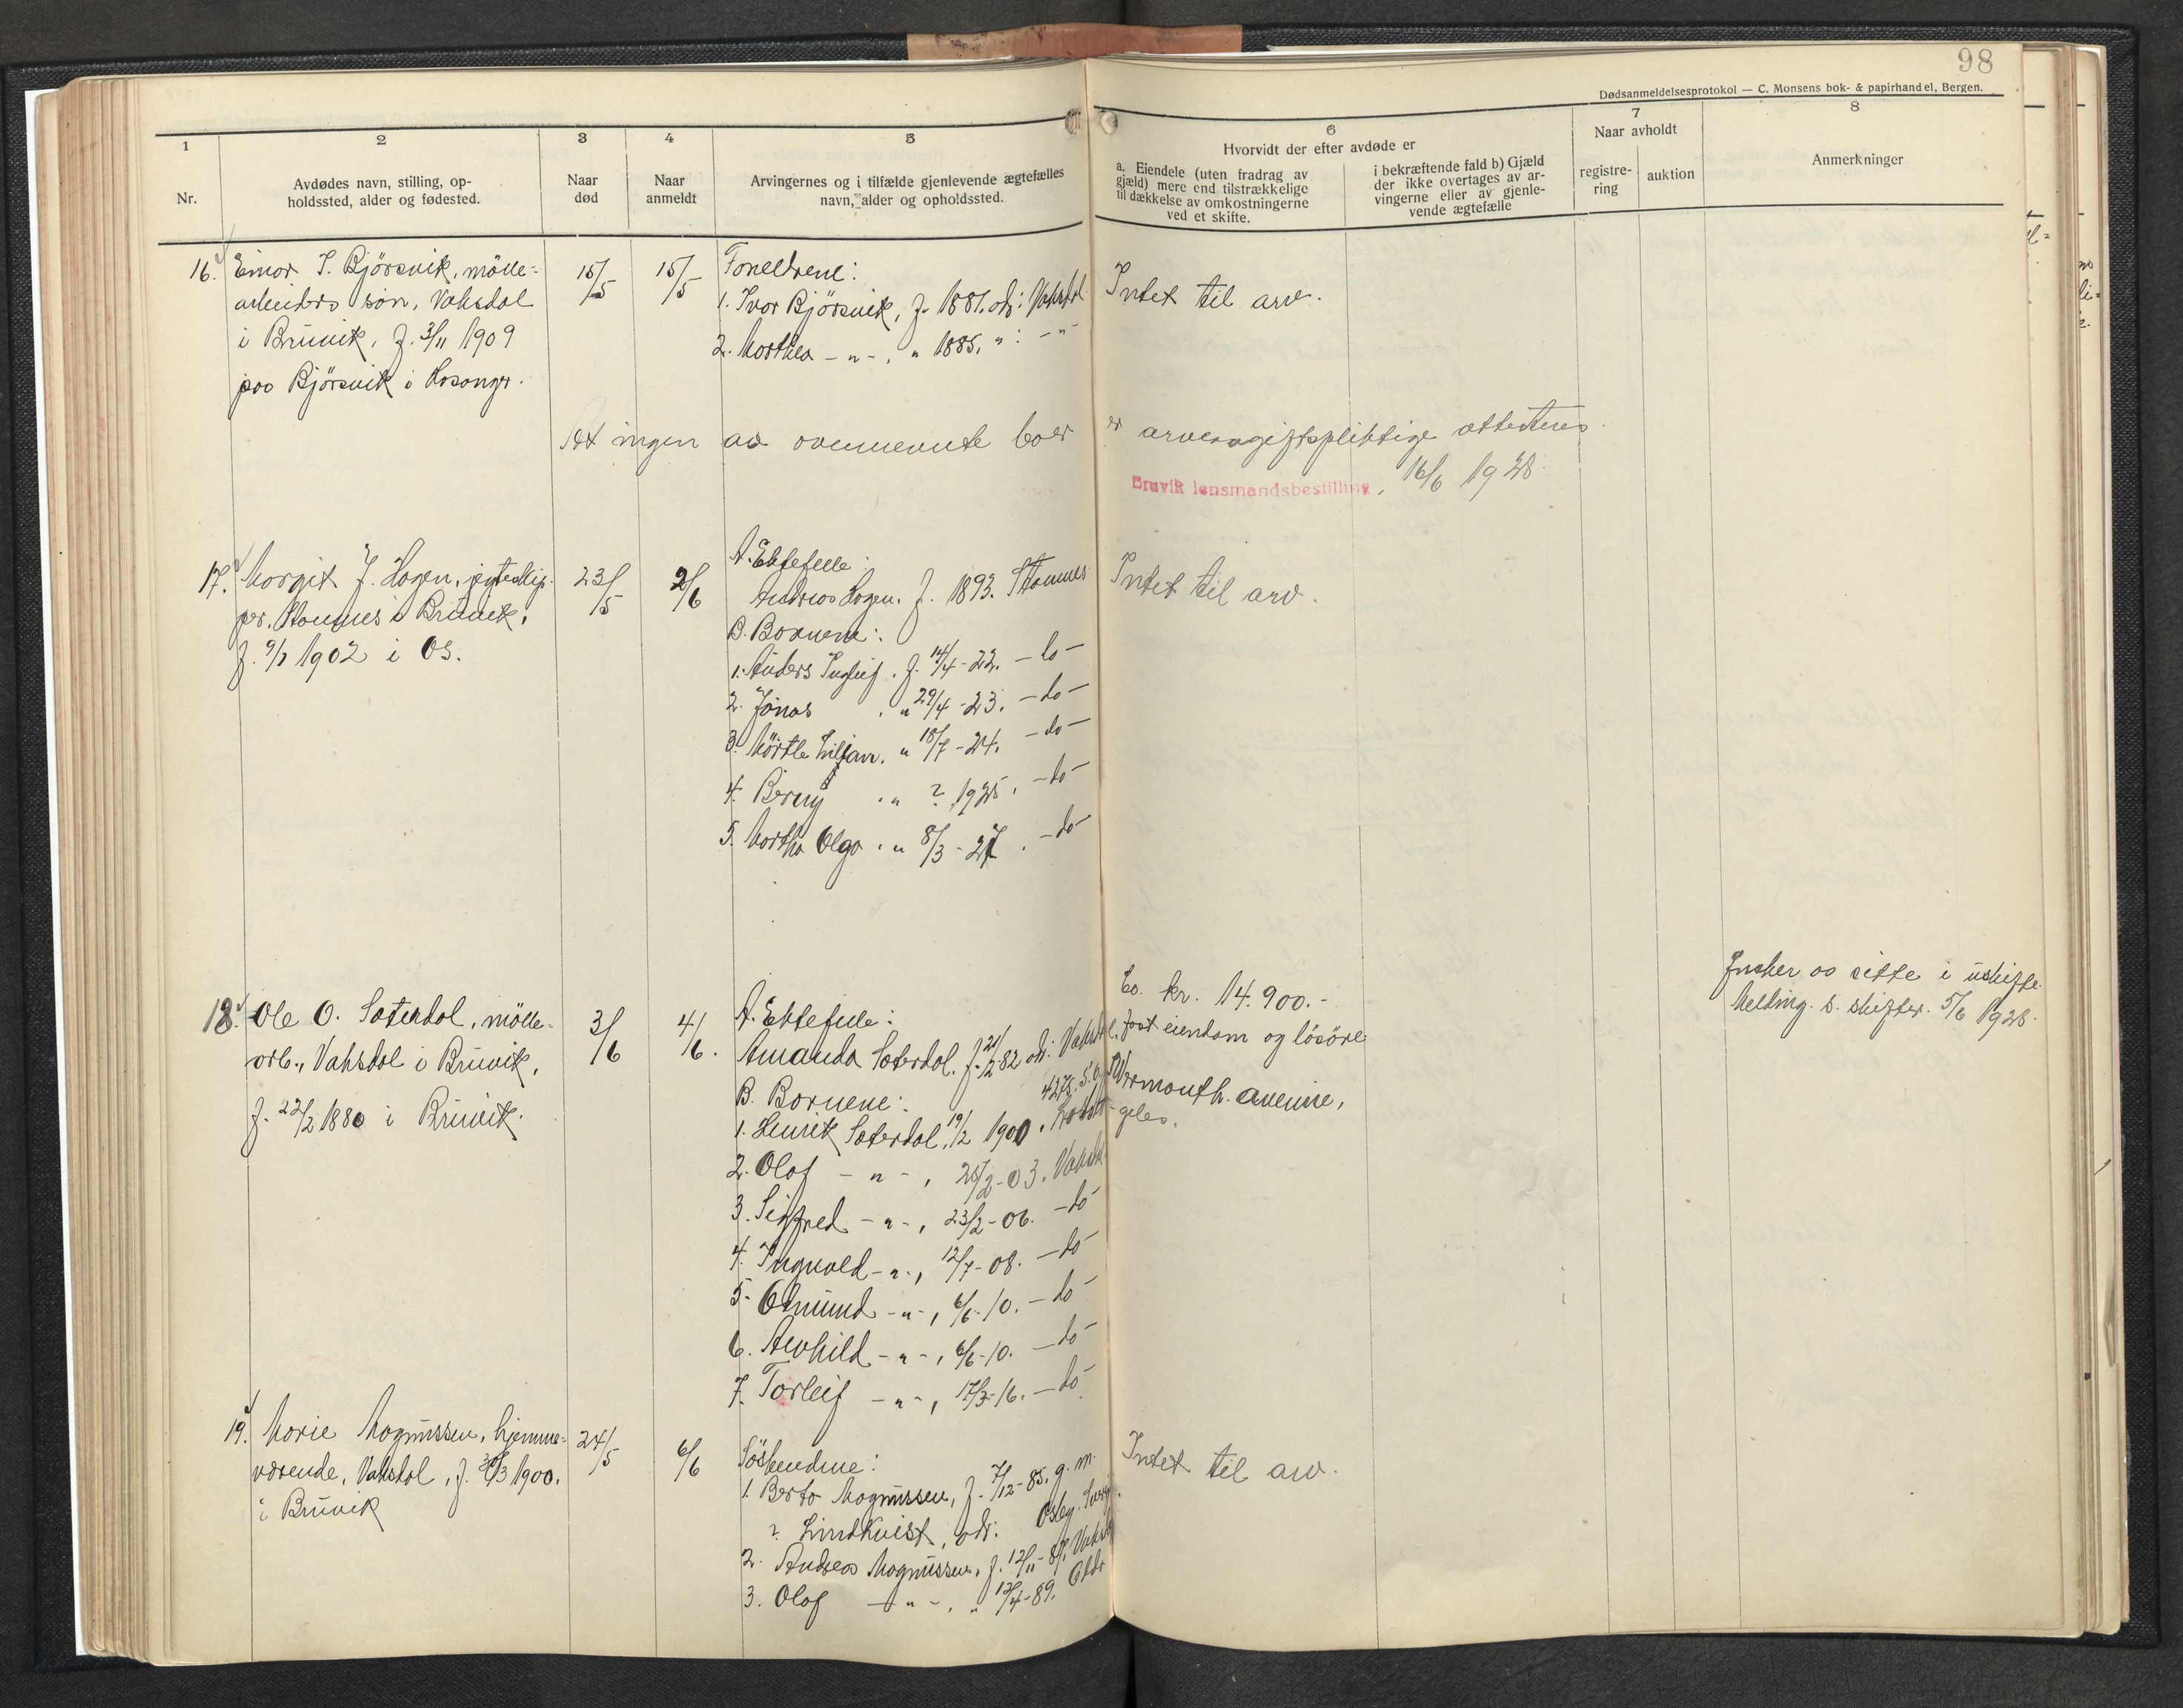 98
Dødsanmeldelsesprotokol — C. Monsens bok- & papirhandel, Bergen.
1
Nr.
2
Avdødes navn, stilling, op-
holdssted, alder og fødested.
3
Naar
død
4
Naar
anmeldt
5
Arvingernes og i tilfælde gjenlevende ægtefælles
navn, alder og opholdssted.
6
Hvorvidt der efter avdøde er
a. Eiendele (uten fradrag av
gjæld) mere end tilstrækkelige
til dækkelse av omkostningerne
ved et skifte.
i bekræftende fald b) Gjæld
der ikke overtages av ar-
vingerne eller av gjenle-
vende ægtefælle
7
Naar avholdt
registre-
ring
auktion
8
Anmerkninger
16. Einar I. Bjørsvik, mölle-
arbeiders søn, Vaksdal
i Bruvik, f. 3/11 1909
paa Bjørsvik i Hosanger.
15/5
15/5
Foreldrene:
1. Ivar Bjørsvik, f. 1881. adr: Vaksdal
2. Marthea - " - , " 1885, " : - " -
Intet til arv.
At ingen av ovennevnte boer er arveavgiftspliktige attesteres
Bruvik lensmandsbestilling, 16/6 1928.
17. Margit J. Hagen,
Stamnes i Bruvik,
f. 9/1 1902 i Os.
23/5
2/6
A. Ektefelle:
Andreas Hagen. f. 1893. Stamnes
B. Barnene:
1. Anders Ingleif. f. 14/4 - 22. - do -
2. Jonas . " 29/4 - 23. - do -
3. Mørtle Liljan. " 18/7 - 24. - do -
4. Berny . " ? 1925, - do -
5. Martha Olga . " 8/3 - 27. - do -
Intet til arv.
18. Ole O. Sæterdal, mölle-
arb., Vaksdal i Bruvik,
f. 22/2 1880 i Bruvik.
3/6
4/6.
A. Ektefelle:
Amanda Sæterdal. f. 21/2 82 adr: Vaksdal.
B. Barnene:
1. Henrik Sæterdal, 19/2 1900.
4278. S. Wermouth. Avenue,
2. Olaf - " - , 25/2 - 03. Vaksdal
3. Sigfred - " - , 23/2 - 06. - do -
4. Ingvald - " - , 12/7 - 08. - do -
5. Edmund - " - , 6/6 - 10. - do -
6. Alvhild - " - , 6/6 - 10. - do -
7. Torleif - " - , 17/3 - 16. - do -
Ca. kr. 14.900.-
fast eiendom og lösöre
Ønsker aa sitte i uskifte.
Melding t. skifter. 5/6 1928.
19. Marie Magnussen, hjemme-
værende, Vaksdal, f. 30/3 1900.
i Bruvik
24/5
6/6
Söskendene:
1. Berta Magnussen, f. 7/12 - 85. g. m.
? Lindkvist, adr. Osby.
2. Andreas Magnussen, f. 12/11 - 87, Vaksdal
3. Olaf - " - , " 12/4 - 89.
Intet til arv.